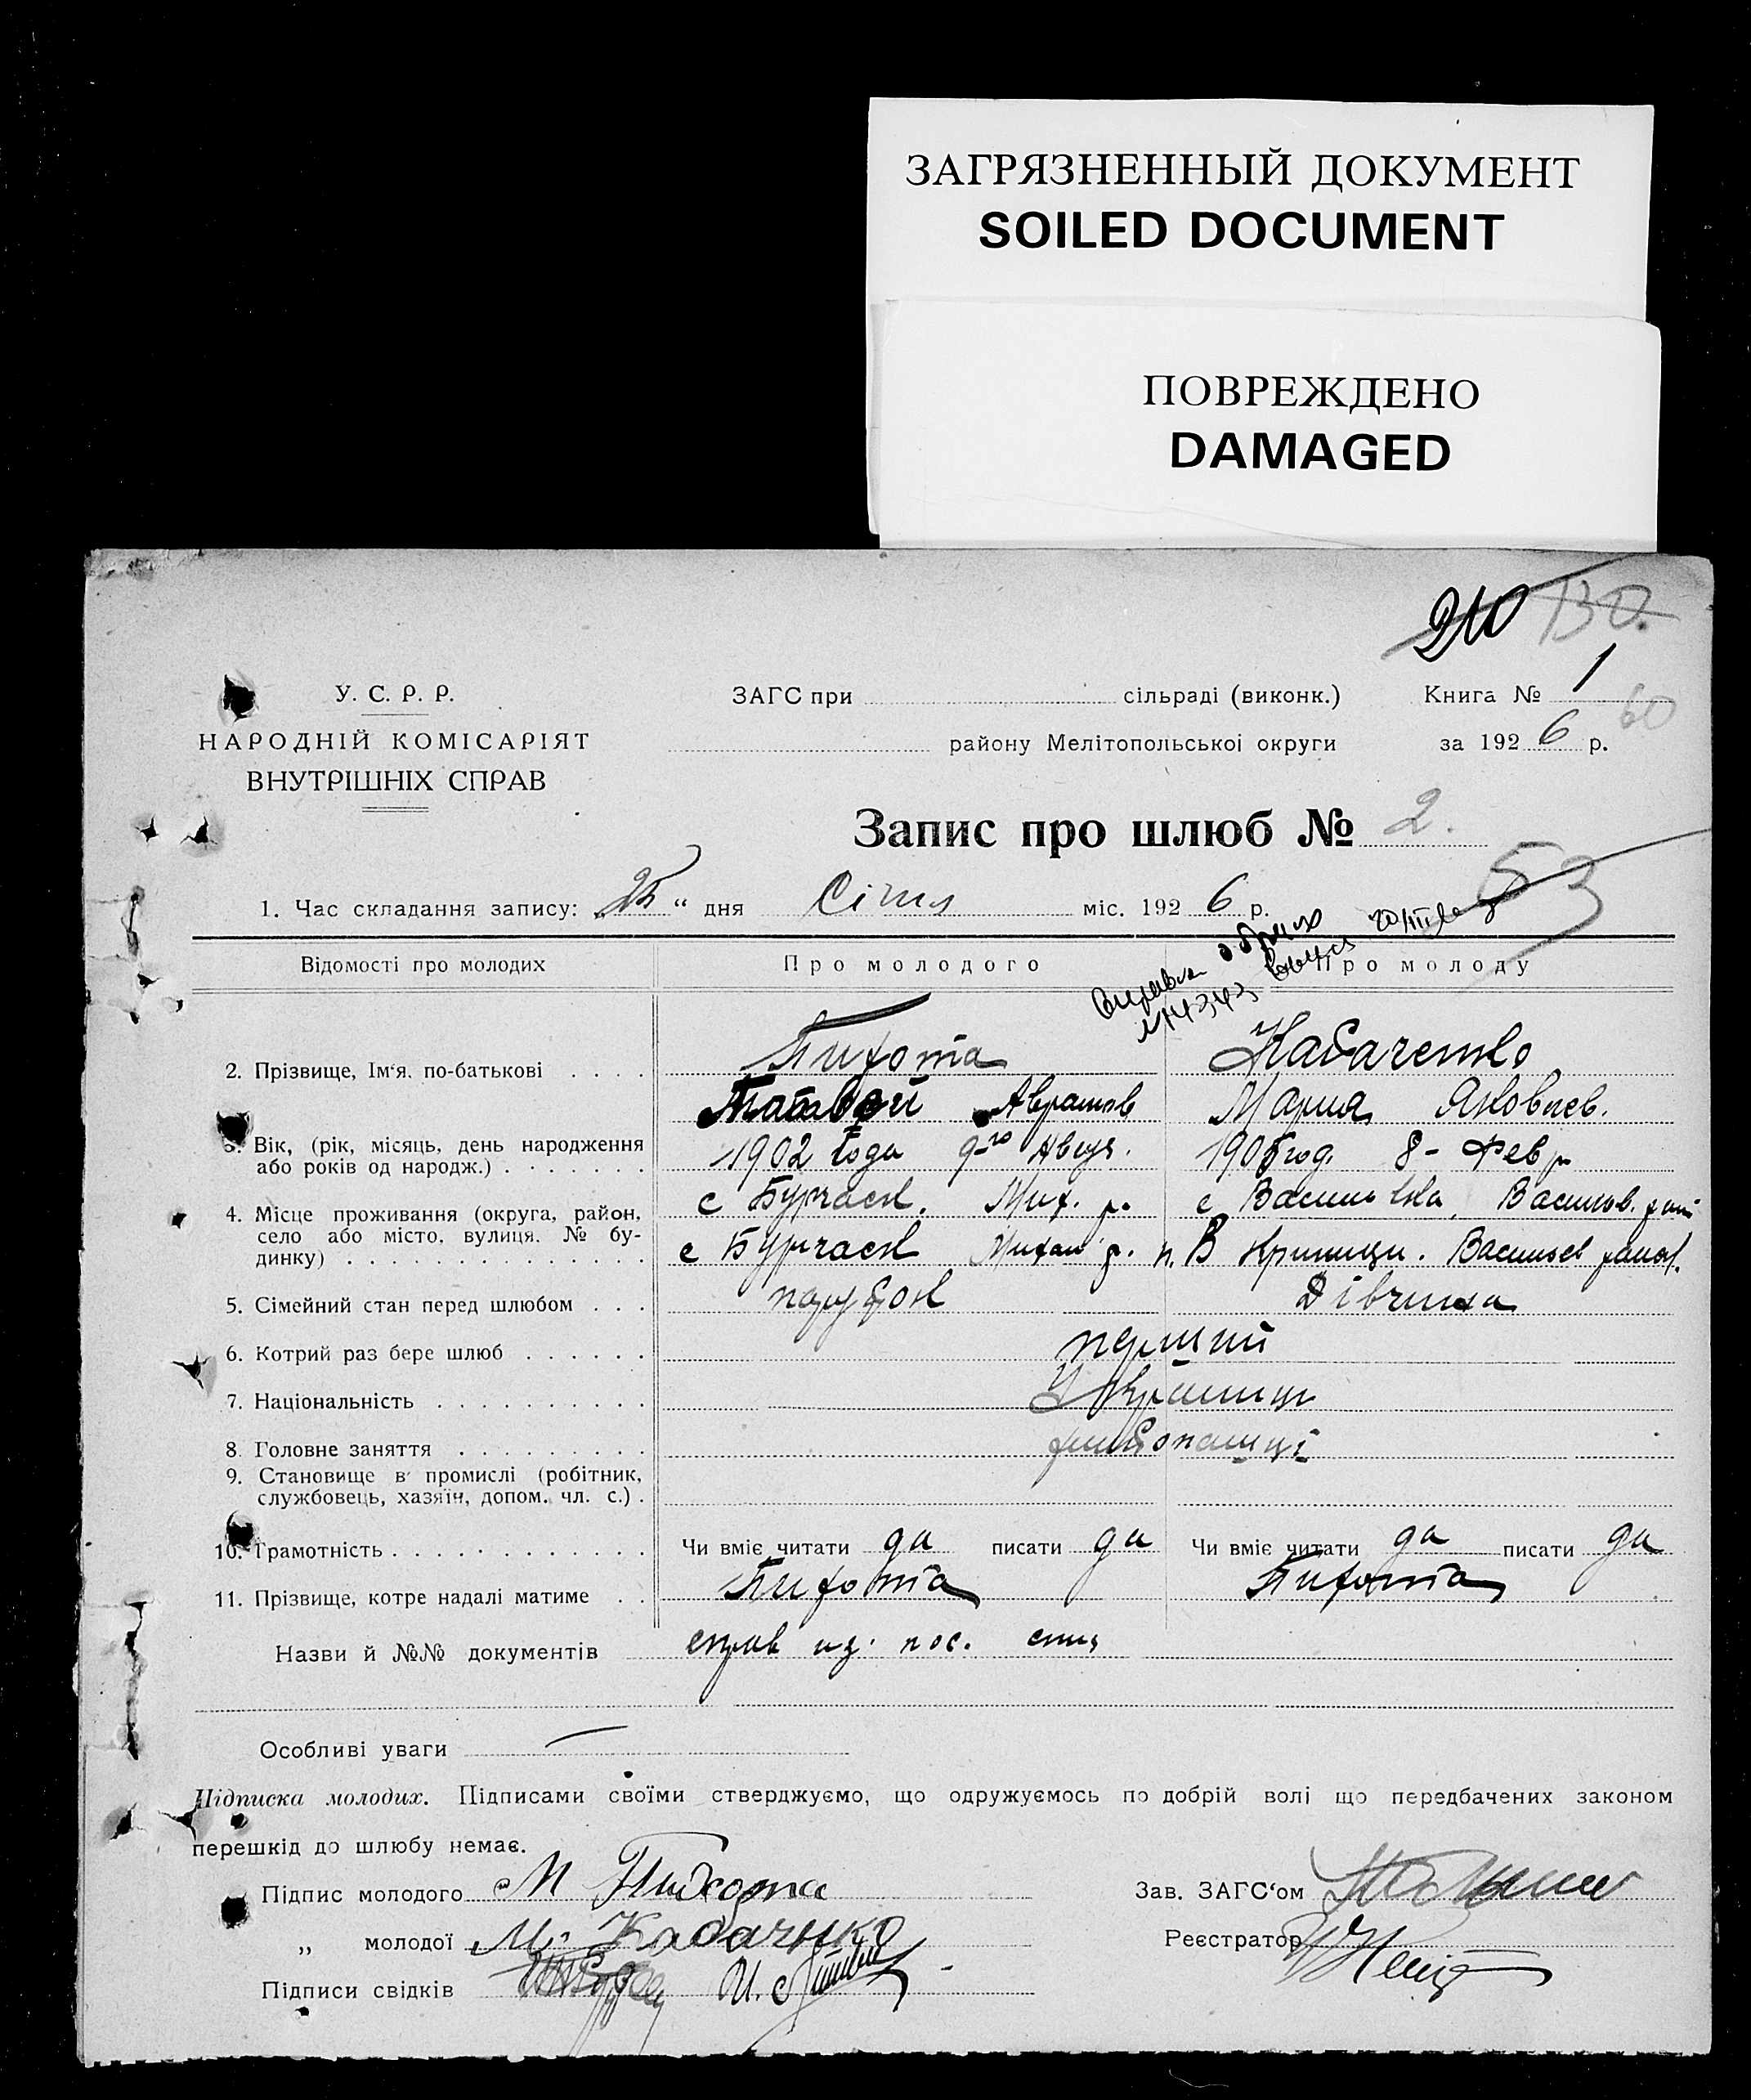 ЗАГРЯЗНЕННЫЙ ДОКУМЕНТ
SOILED DOCUMENT
ПОВРЕЖДЕНО
DAMAGED
210 130.
У. С. Р. Р.
ЗАГС при сільраді (виконк.) Книга № 1
60
НАРОДНІЙ КОМІСАРІЯТ
ВНУТРІШНІХ СПРАВ
району Мелітопольської округи за 1926 р.
Запис про шлюб № 2.
53
1. Час складання запису: „25“ дня Січня міс. 1926 р.
Відомості про молодих Про молодого Про молоду
Справка о браке
2. Прізвище, Ім‘я, по-батькові Пихота Кабаченко
Матвей Аврамов Мария Яковлев.
3. Вік, (рік, місяць, день народження
або років од народж.) 1902 года 9-го Авгус. 1905 год. 8 - Февр
4. Місце проживання (округа, район,
село або місто, вулиця, № бу-
динку)
с Бурчаск. Мих. р. с Васильвка, Васильв.
с Бурчаск Михай р. п. В Криници. Васильев район.
5. Сімейний стан перед шлюбом парубок Дівчина
6. Котрий раз бере шлюб перший
7. Національність Украинци
8. Головне заняття
9. Становище в промислі (робітник,
службовець, хазяїн, допом. чл. с.)
10. Грамотність Чи вміє читати да писати да Чи вміє читати да писати да
11. Прізвище, котре надалі матиме Пихота Пихота
Назви й №№ документів справ из. пос.
Особливі уваги —
Підписка молодих. Підписами своїми стверджуємо, що одружуємось по добрій волі що передбачених законом
перешкід до шлюбу немає.
Підпис молодого М Пихота Зав. ЗАГС‘ом
„ молодої М. Кабачнко Реєстратор
Підписи свідків